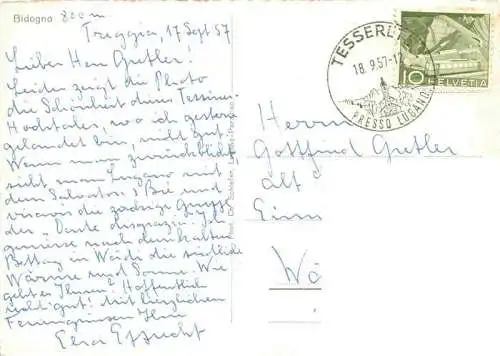 Bidogno 800 m
Treggia, 17. Sept. 57
Lieber Herr Gretler!
Leider zeigt die Photo
die Schönheit dieses Tessiner
Hochtales, wo ich gestern
gelandet bin, nicht gut.
Wenn man zurückblickt,
sieht man Lugano mit
dem Salvatore & Bré und
visavis die zackige Gruppe
der "Denti disgrazia". Ich
geniesse nach dem kalten
Bettag in Weid die südliche
Wärme und Sonne. Wie
geht es Ihnen? Hoffentlich
recht gut! Mit herzlichen
Feriengrüssen Ihre
Elsa
TESSERETE
18.9.57-12
PRESSO LUGANO
10 HELVETIA
Herrn
Gottfried Gretler
alt